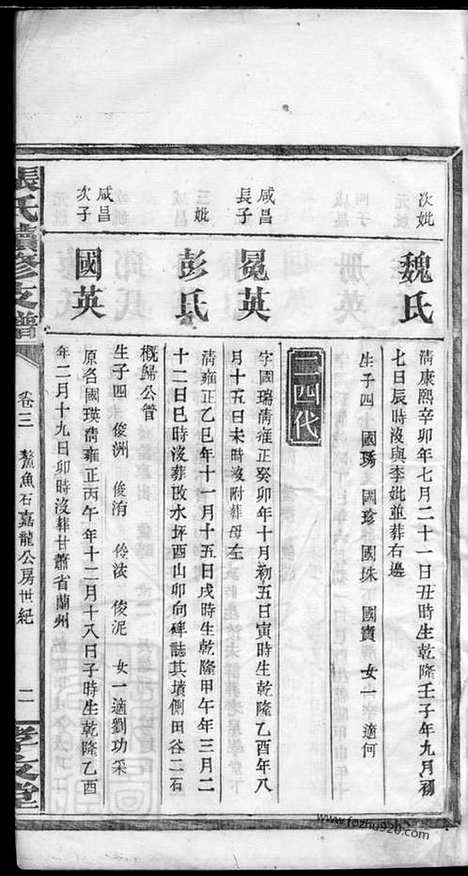 次妣
魏氏
清康熙辛卯年七月二十一日丑時生乾隆壬子年九月初
七日辰時沒與李妣並葬右邊
生子四　國瑒　國珍　國珠　國寶　女一　適何
二四代
咸昌
長子
冕英
字國瑞清雍正癸卯年十月初五日寅時生乾隆乙酉年八
月十五日未時沒附葬母左
妣
彭氏
清雍正乙巳年十一月十五日戌時生乾隆甲午年三月二
十二日巳時沒葬敗水坪酉山卯向碑誌其墳側田谷二石
概歸公管
生子四　俊洲　俊洧　俊泥　女一適劉功采
咸昌
次子
國英
原名國瑛清雍正丙午年十二月十八日子時生乾隆乙酉
年二月十九日卯時沒葬甘肅省蘭州
張氏續修支譜
卷三
鰲魚石嘉龍公房世紀
二
孝友堂
www.fozhu920.com